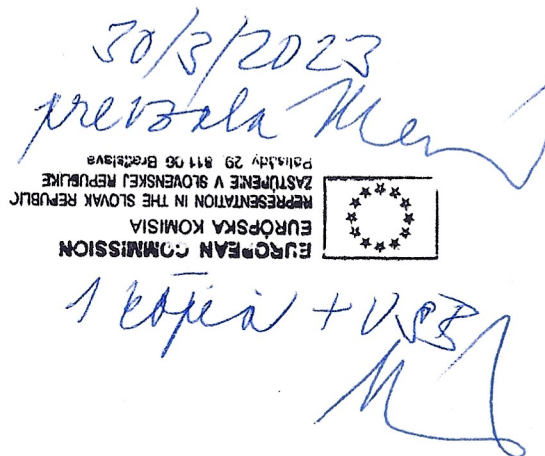 30/3/2023
prevzala
EUROPEAN COMMISSION
EURÓPSKA KOMISIA
REPRESENTATION IN THE SLOVAK REPUBLIC
ZASTÚPENIE V SLOVENSKEJ REPUBLIKE
Palisády 29, 811 06 Bratislava
1 kópia + USB